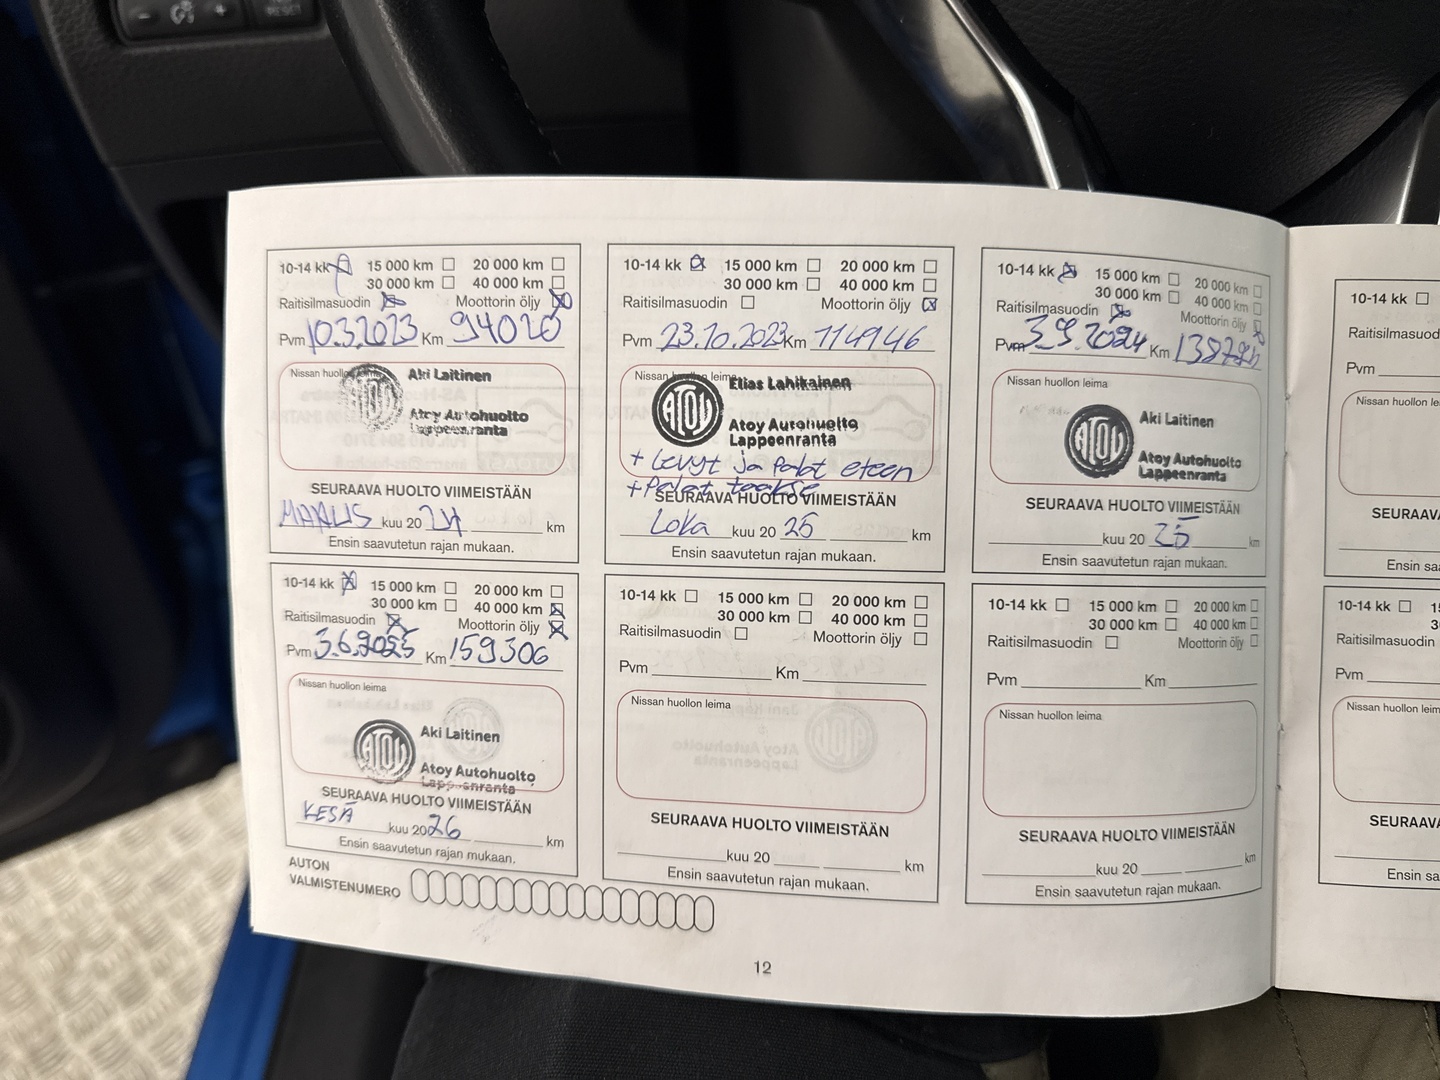 RESET
10-14 kk 15 000 km 20 000 km
30 000 km 40 000 km
Raitisilmasuodin Moottorin öljy
Pvm 10.3.2023 Km 94020
Nissan huollon leima
Aki Laitinen
Atoy Autohuolto
Lappeenranta
SEURAAVA HUOLTO VIIMEISTÄÄN
MAALIS kuu 2024 km
Ensin saavutetun rajan mukaan.
10-14 kk 15 000 km 20 000 km
30 000 km 40 000 km
Raitisilmasuodin Moottorin öljy
Pvm 23.10.2023 Km 114946
Nissan huollon leima
ATOY
Elias Lahikainen
Atoy Autohuolto
Lappeenranta
+ Levyt ja Palat eteen
+ Palat taakse
SEURAAVA HUOLTO VIIMEISTÄÄN
Loka kuu 20 25 km
Ensin saavutetun rajan mukaan.
10-14 kk 15 000 km 20 000 km
30 000 km 40 000 km
Raitisilmasuodin Moottorin öljy
Pvm 3.9.2024 Km
Nissan huollon leima
ATOY
Aki Laitinen
Atoy Autohuolto
Lappeenranta
SEURAAVA HUOLTO VIIMEISTÄÄN
kuu 20 25 km
Ensin saavutetun rajan mukaan.
10-14 kk 15 000 km 20 000 km
30 000 km 40 000 km
Raitisilmasuodin Moottorin öljy
Pvm 3.6.2025 Km 159306
Nissan huollon leima
ATOY
Aki Laitinen
Atoy Autohuolto
Lappeenranta
SEURAAVA HUOLTO VIIMEISTÄÄN
KESÄ kuu 2026 km
Ensin saavutetun rajan mukaan.
10-14 kk 15 000 km 20 000 km
30 000 km 40 000 km
Raitisilmasuodin Moottorin öljy
Pvm Km
Nissan huollon leima
SEURAAVA HUOLTO VIIMEISTÄÄN
kuu 20 km
Ensin saavutetun rajan mukaan.
10-14 kk 15 000 km 20 000 km
30 000 km 40 000 km
Raitisilmasuodin Moottorin öljy
Pvm Km
Nissan huollon leima
SEURAAVA HUOLTO VIIMEISTÄÄN
kuu 20 km
Ensin saavutetun rajan mukaan.
AUTON
VALMISTENUMERO
12
10-14 kk
Pvm
Nissan huollon
Ensin
10-14 kk
Pvm
Nissan huollon
Ensin